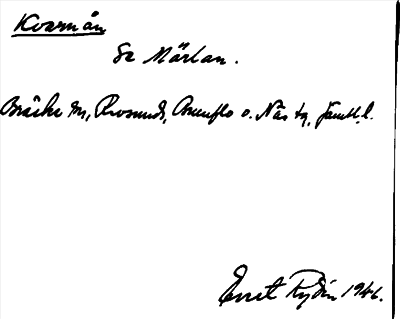 Kvarnån
Se Mörtan.
Bräcke sn, Revsunds, Brunflo o. Näs tg, Jämtl. l.
Ernst Rydin 1946.